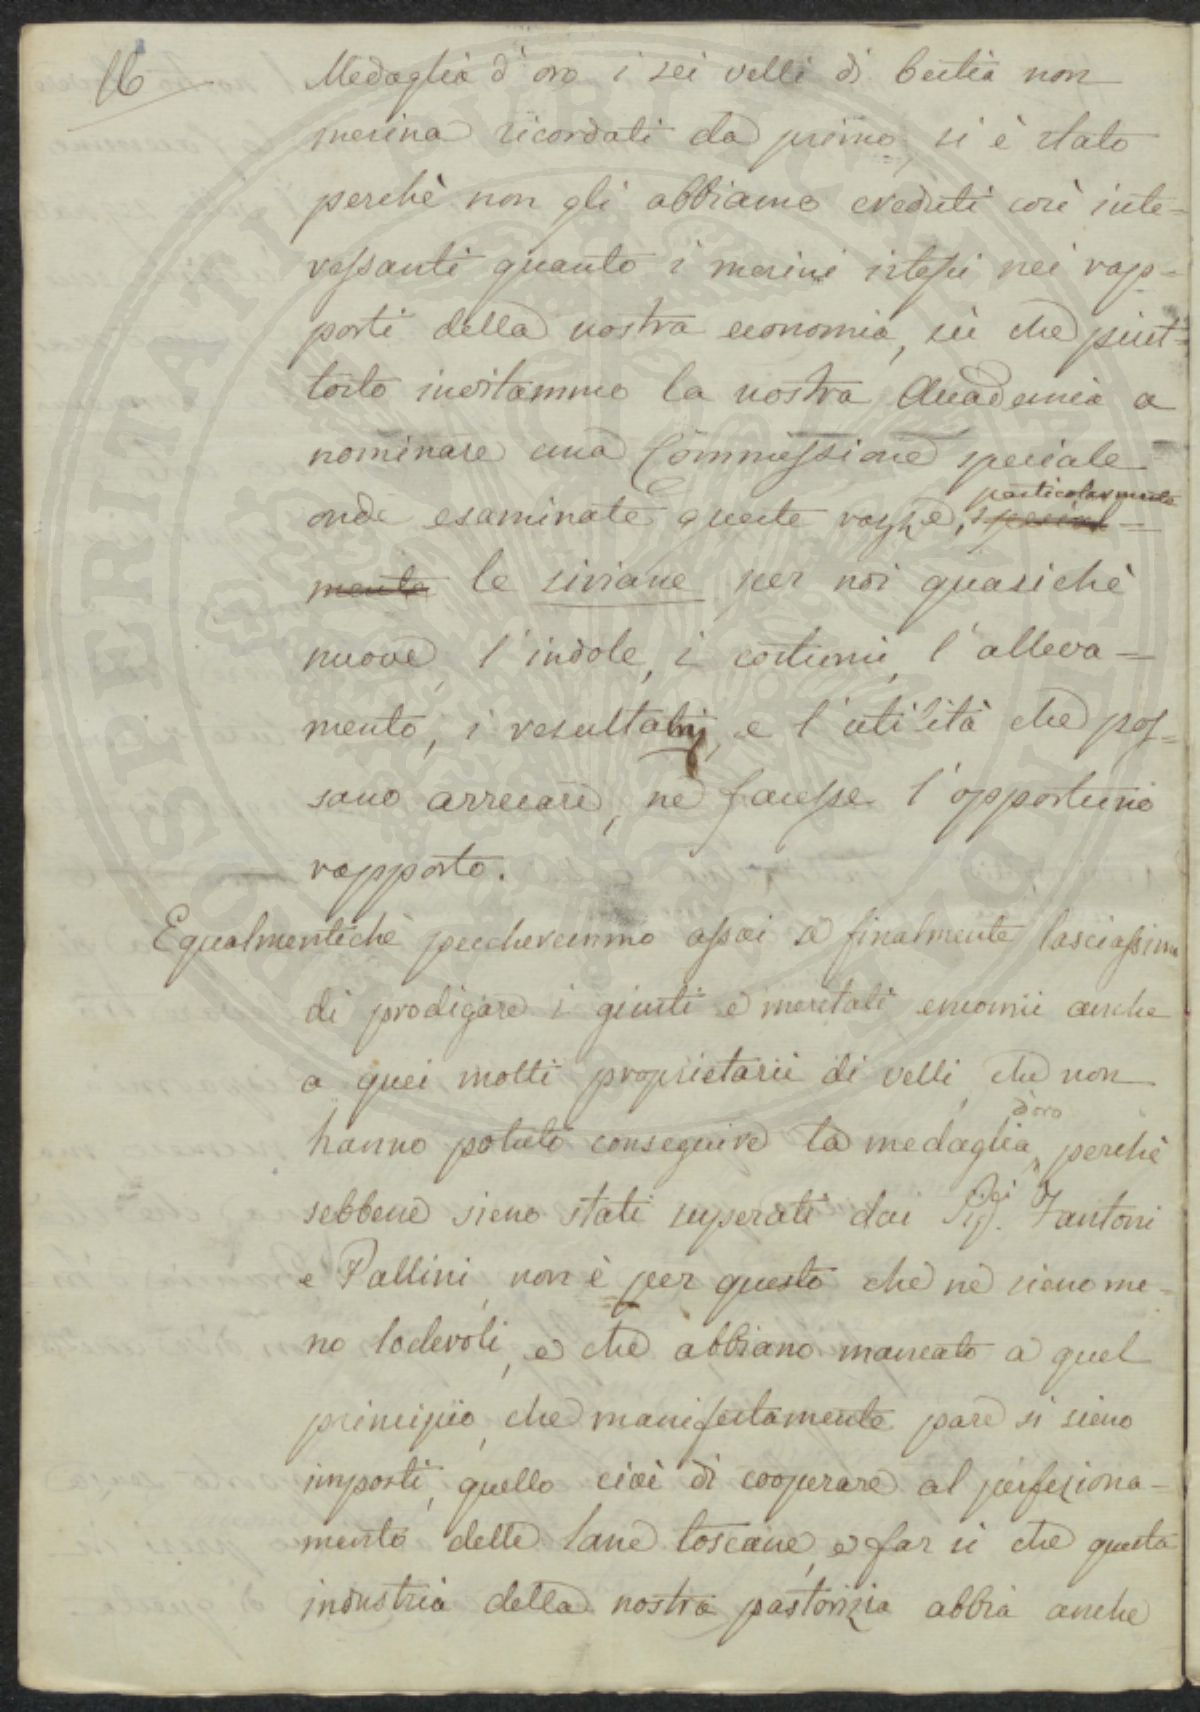 16
Medaglia d'oro i sei velli di bestia non
merina ricordati da primo, si è stato
perchè non gli abbiamo creduti così inte=
ressanti quanto i merini istessi nei rap=
porti della nostra economia, sì che piut=
tosto invitammo la nostra Accademia a
nominare una Commissione speciale
onde esaminate queste razze, special= particolarmente
mente le siriane per noi quasichè
nuove, l'indole, i costumi, l'alleva=
mento, i resultati, e l'utilità che pos=
sano arrecare, ne facesse l'opportuno
rapporto.
Egualmentechè peccheremmo assai se finalmente lasciassimo
di prodigare i giusti e meritati encomii anche
a quei molti proprietarii di velli, che non
hanno potuto conseguire la medaglia d'oro, perchè
sebbene sieno stati superati dai Sig.ri Fantoni
e Pallini, non è per questo che ne sieno me=
no lodevoli, e che abbiano mancato a quel
principio, che manifestamente pare si sieno
imposti, quello cioè di cooperare al perfeziona=
mento delle lane toscane, e far sì che questa
industria della nostra pastorizia abbia anche
SOSPERITATI PUBLICAE AUGENDAE